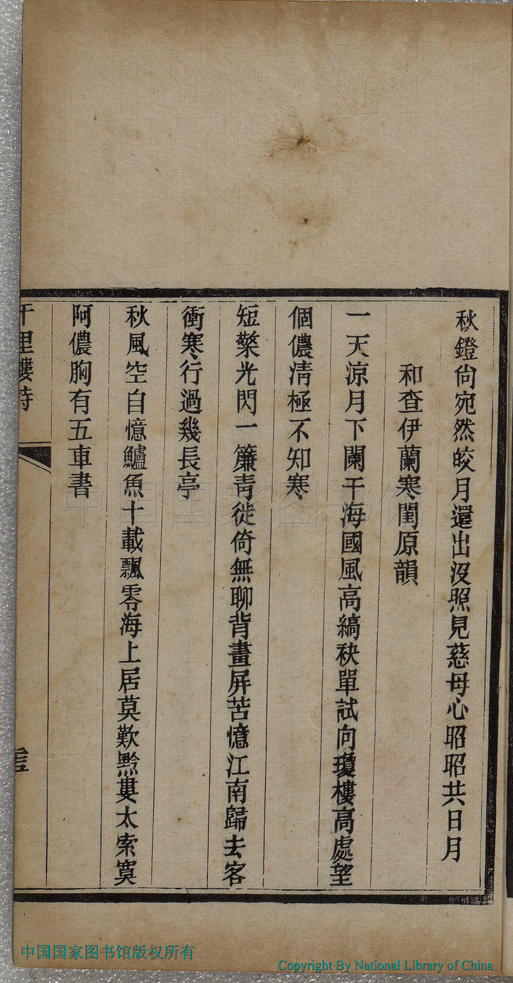 秋鐙尙宛然皎月還出沒照見慈母心昭昭共日月
和查伊蘭寒閨原韻
一天涼月下闌干海國風高縞袂單試向瓊樓高處望
個儂淸極不知寒
短檠光閃一簾靑徙倚無聊背畫屏苦憶江南歸去客
衝寒行過幾長亭
秋風空自憶鱸魚十載飄零海上居莫歎黔婁太索寞
阿儂胸有五車書
千里樓詩
中国国家图书馆版权所有
Copyright By National Library of China